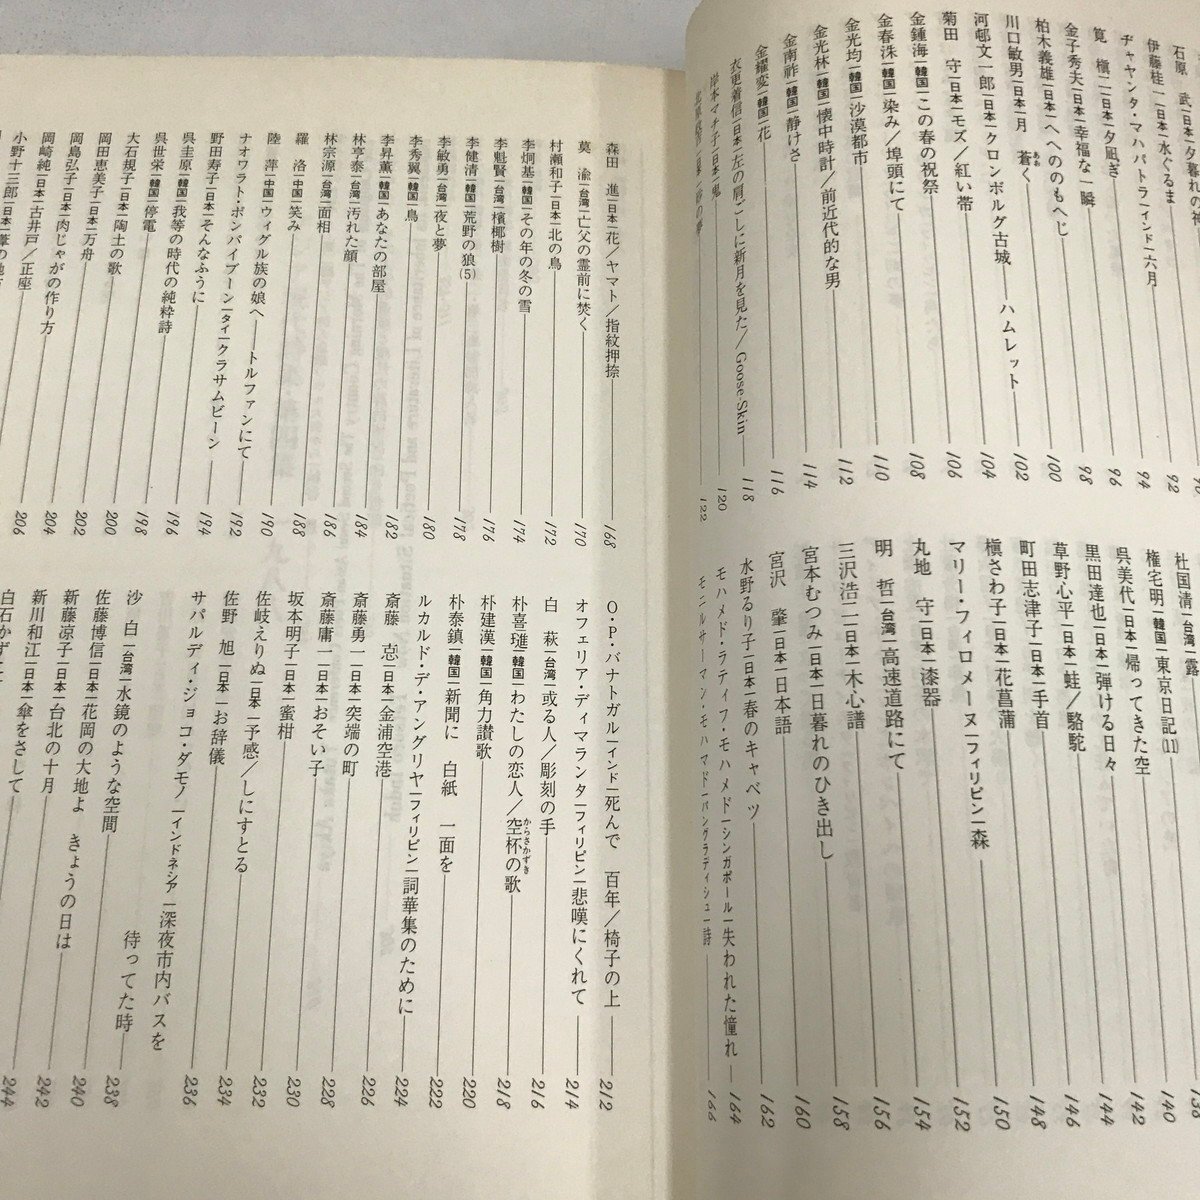 伊藤桂一―日本―水ぐるま 94
チャヤンタ・マハパトラ―インド―六月 96
筧 槇二―日本―夕凪ぎ
金子秀夫―日本―幸福な一瞬 98
柏木義雄―日本―へへののもへじ 100
川口敏男―日本―月 蒼く、 102
あお
河邨文一郎―日本―クロンボルグ古城 ハムレット 104
菊田 守―日本―モズ/紅い帯 106
金鍾海―韓国―この春の祝祭 108
金春洙―韓国―染み/埠頭にて 110
金光均―韓国―沙漠都市 112
金光林―韓国―懐中時計/前近代的な男 114
金南祚―韓国―静けさ 116
金耀燮―韓国―花 118
衣更着信―日本―左の肩ごしに新月を見た/Goose-Skin 120
岸本マチ子―日本―鬼 122
杜国清―台湾―露 138
権宅明―韓国―東京日記(11) 140
呉美代―日本―帰ってきた空 142
黒田達也―日本―弾ける日々 144
草野心平―日本―蛙/駱駝 146
町田志津子―日本―手首 148
槇さわ子―日本―花菖蒲 150
マリー・フィロメーヌ―フィリピン―森 152
丸地 守―日本―漆器 154
明 哲―台湾―高速道路にて 156
三沢浩二―日本―木心譜 158
宮本むつみ―日本―日暮れのひき出し 160
宮沢 肇―日本―日本語 162
水野るり子―日本―春のキャベツ 164
モハメド・ラティフ・モハメド―シンガポール―失われた憧れ 166
モニルサーマン・モハマド―バングラディシュ―詩
森田 進―日本―花/ヤマト/指紋押捺 168
莫 渝―台湾―亡父の霊前に焚く 170
村瀬和子―日本―北の鳥 172
李炯基―韓国―その年の冬の雪 174
李魁賢―台湾―檳椰樹 176
李健清―韓国―荒野の狼(5) 178
李敏勇―台湾―夜と夢 180
李秀翼―韓国―鳥 182
李昇薫―韓国―あなたの部屋 184
林亨泰―台湾―汚れた顔 186
林宗源―台湾―面相 188
羅 洛―中国―笑み 190
陸 萍―中国―ウィグル族の娘へ――トルファンにて 192
ナオワラト・ポンパイブーン―タイ―クラサムビーン 194
野田寿子―日本―そんなふうに 196
呉圭原―韓国―我等の時代の純粋詩 198
呉世栄―韓国―停電 200
大石規子―日本―陶土の歌 202
岡田恵美子―日本―万舟 204
岡島弘子―日本―肉じゃがの作り方 206
岡崎純―日本―古井戸/正座
小野十三郎―日本―葦の地方
O・P・バナトガル―インド―死んで 百年/椅子の上 212
オフェリア・ディマランタ―フィリピン―悲嘆にくれて 214
白 萩―台湾―或る人/彫刻の手 216
朴喜璡―韓国―わたしの恋人/空杯の歌 218
からさかずき
朴建漢―韓国―角力讃歌 220
朴泰鎮―韓国―新聞に 白紙 一面を 222
ルカルド・デ・アングリヤ―フィリピン―詞華集のために 224
斎藤 怘―日本―金浦空港 226
斎藤勇一―日本―突端の町 228
斎藤庸一―日本―おそい子 230
坂本明子―日本―蜜柑 232
佐岐えりぬ―日本―予感/しにすとる 234
佐野 旭―日本―お辞儀 236
サパルディ・ジョコ・ダモノ―インドネシア―深夜市内バスを
待ってた時 238
沙 白―台湾―水鏡のような空間 240
佐藤博信―日本―花岡の大地よ きょうの日は 242
新藤凉子―日本―台北の十月 244
新川和江―日本―傘をさして
白石かずこ